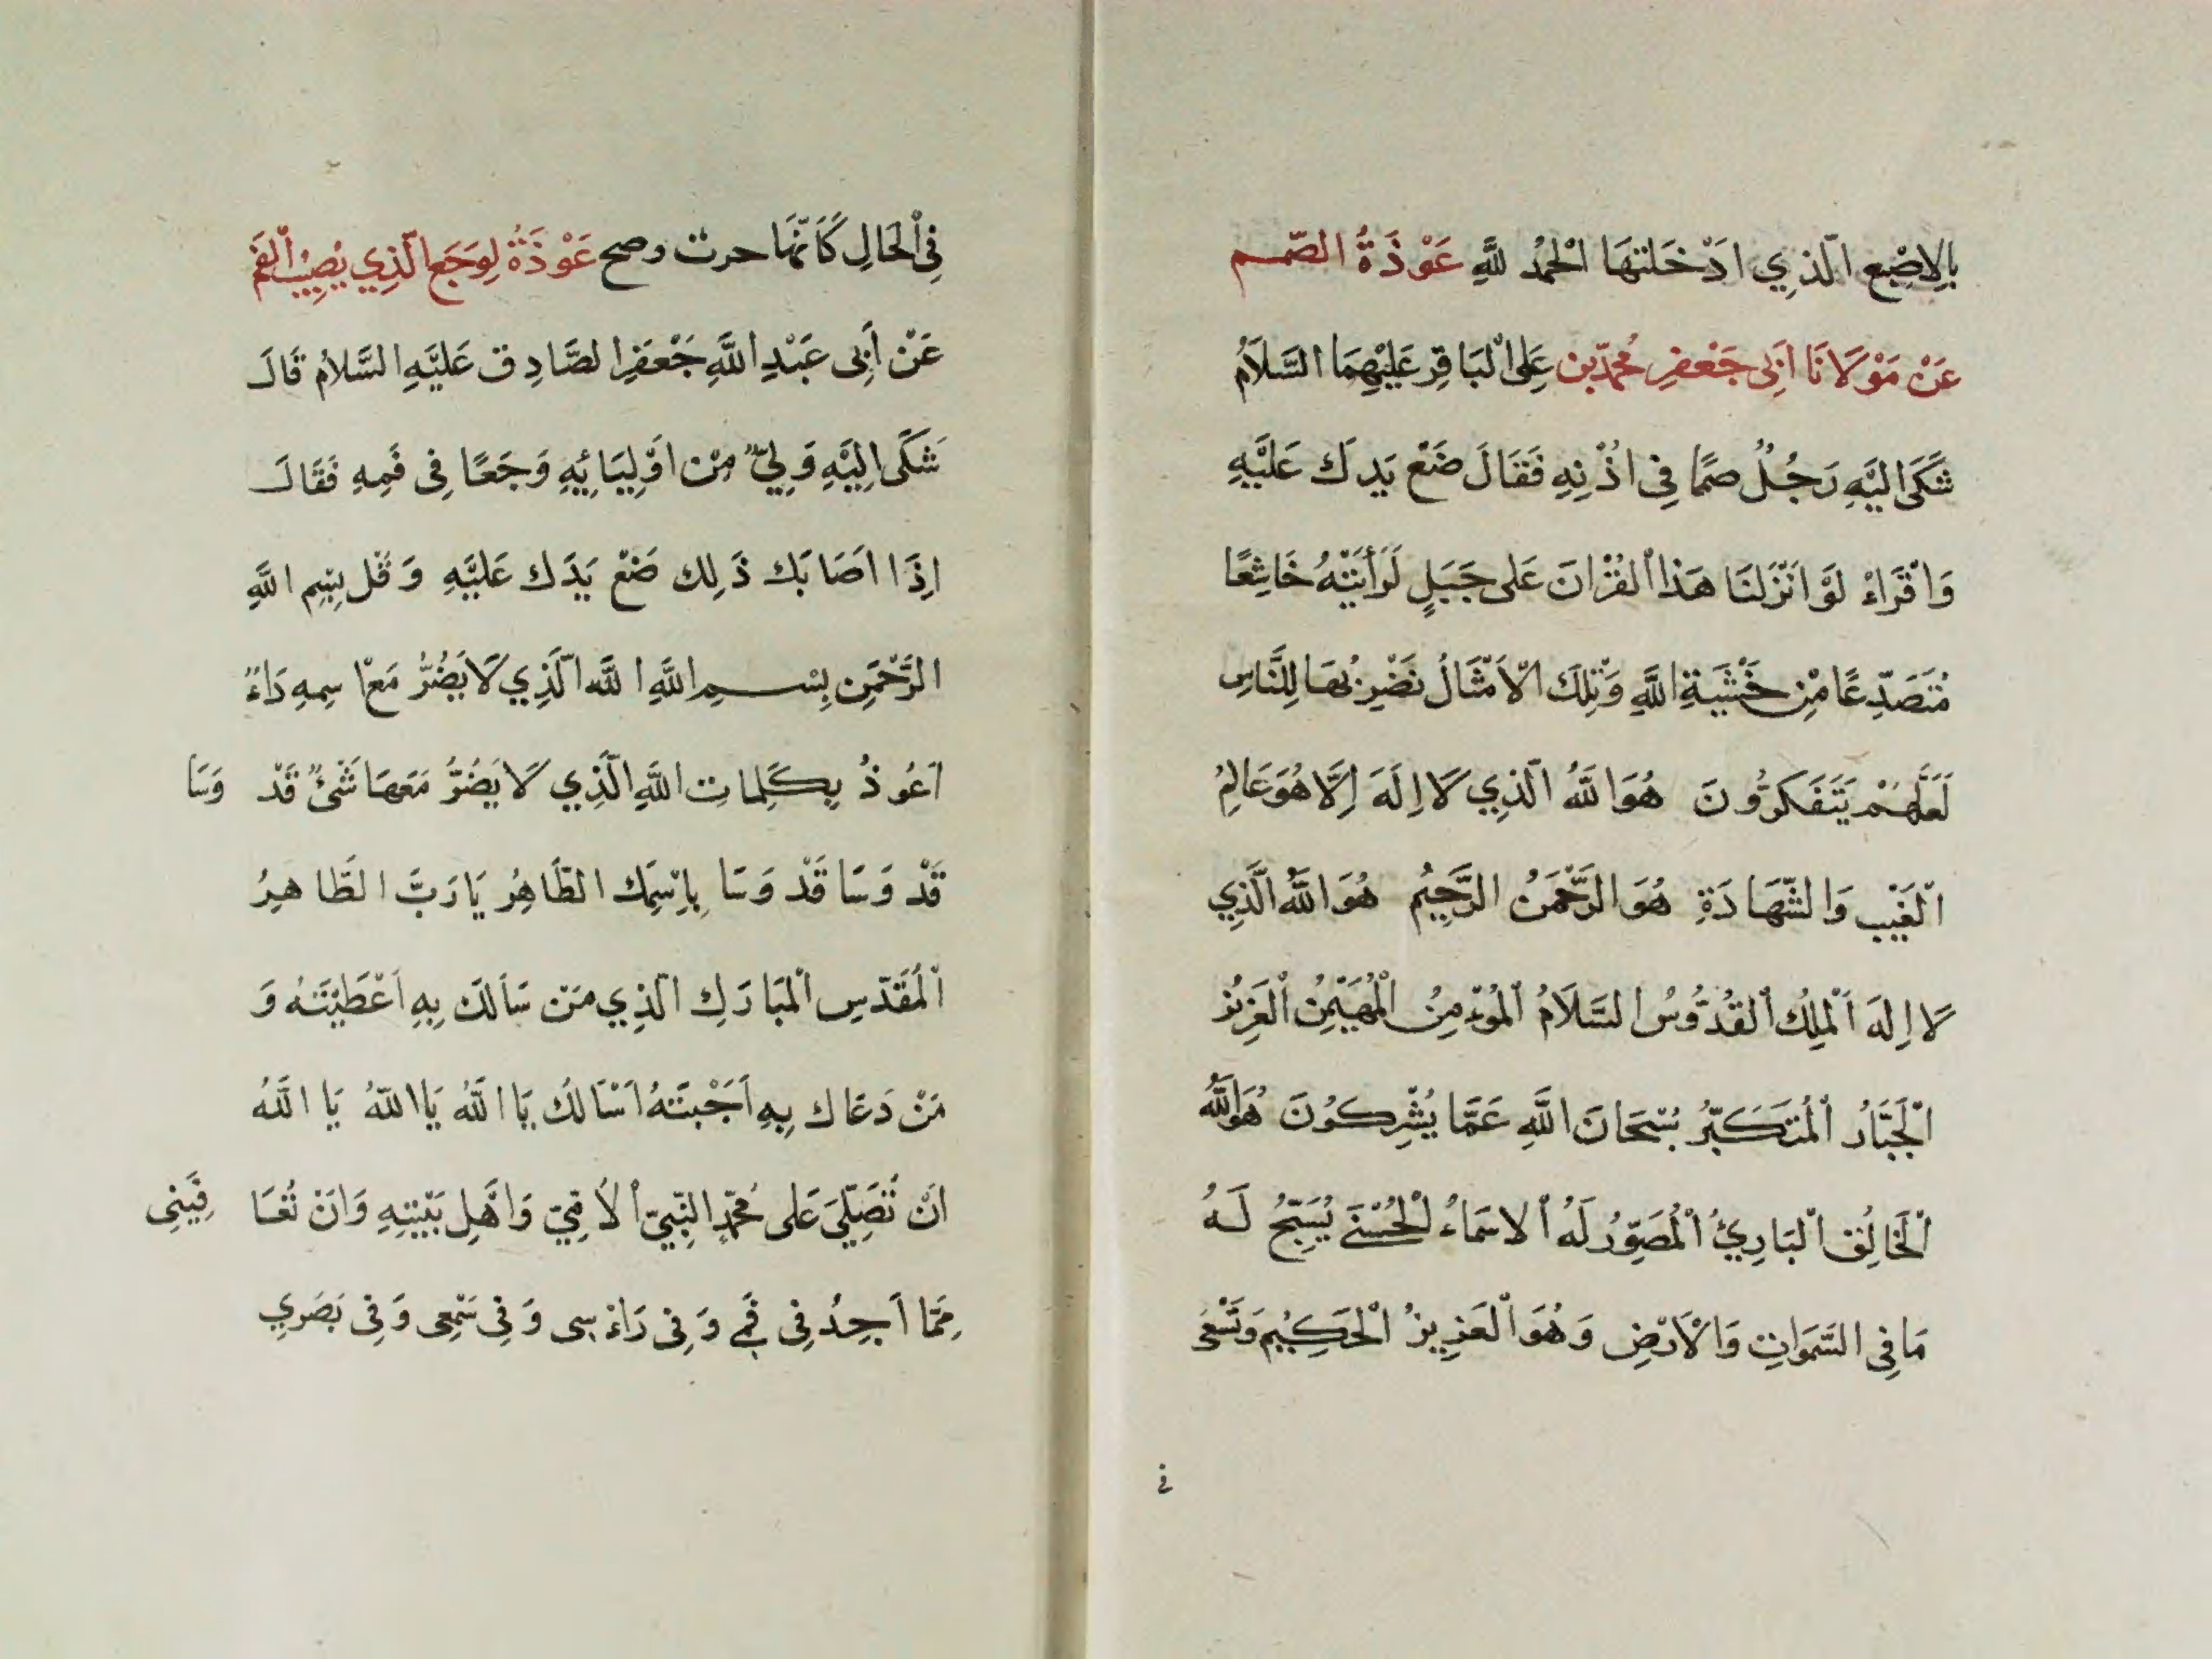 بِالاِصْبَعِ الَّذِي اَدْخَلَتْهَا الْحَمْدُ لِلَّهِ عَوْذَةُ الصَّمم
عَنْ مَوْلَانَا اَبِي جَعْفَرِ مُحَمَّدِ بْنِ عَلِي الْبَاقِرِ عَلَيْهِمَا السَّلَامُ
شَكَى اِلَيْهِ رَجُلٌ صَمَمًا فِي اُذْنِهِ فَقَالَ ضَعْ يَدَكَ عَلَيْهِ
وَاقْرَاءْ لَوْ اَنْزَلْنَا هَذَا الْقُرْانَ عَلَى جَبَلٍ لَرَأَيْتَهُ خَاشِعًا
مُتَصَدِّعًا مِنْ خَشْيَةِ اللَّهِ وَتِلْكَ الْاَمْثَالُ نَضْرِبُهَا لِلنَّاسِ
لَعَلَّهُمْ يَتَفَكَّرُونَ هُوَ اللَّهُ الَّذِي لَا اِلَهَ اِلَّا هُوَ عَالِمُ
الْغَيْبِ وَالشَّهَادَةِ هُوَ الرَّحْمَنُ الرَّحِيْمُ هُوَ اللَّهُ الَّذِي
لَا اِلَهَ اَلْمَلِكُ الْقُدُّوسُ السَّلَامُ الْمُؤْمِنُ الْمُهَيْمِنُ الْعَزِيْزُ
الْجَبَّارُ الْمُتَكَبِّرُ سُبْحَانَ اللَّهِ عَمَّا يُشْرِكُوْنَ هُوَ اللَّهُ
الْخَالِقُ الْبَارِئُ الْمُصَوِّرُ لَهُ الْاَسْمَاءُ الْحُسْنَى يُسَبِّحُ لَهُ
مَا فِي السَّمَوَاتِ وَالْاَرْضِ وَهُوَ الْعَزِيزُ الْحَكِيْم وَتَشْفَى
فى
فِي الْحَالِ كَاَنَّهَا حرت وصح عَوْذَةُ لِوَجَعِ الَّذِي يُصِيْبُ الْفَمَ
عَنْ أَبِي عَبْدِ اللَّهِ جَعْفَرِ الصَّادِقِ عَلَيْهِ السَّلَامُ قَالَ
شَكَى اِلَيْهِ وَلِيٌّ مِنْ اَوْلِيَائِهِ وَجَعًا فِي فَمِهِ فَقَالَ
اِذَا اَصَابَكَ ذَلِكَ ضَعْ يَدَكَ عَلَيْهِ وَقُل بِسْمِ اللَّهِ
الرَّحْمَنِ بِسْمِ اللَّهِ اللَّهُ الَّذِي لَا يَضُرُّ مَعَ اسمِهِ دَاءٌ
اَعُوذُ بِكَلِمَاتِ اللَّهِ الَّذِي لَا يَضُرُّ مَعَهَا شَيْءٌ قَدْ وَسًا
قَدْ وَسًا قَدْ وَسًا بِاسْمِكَ الطَّاهِرُ يَا رَبَّ الطَّاهِرُ
الْمُقَدَّسِ الْمُبَارَكِ الَّذِي مَنْ سَاَلَكَ بِهِ اَعْطَيْتَهُ وَ
مَنْ دَعَاكَ بِهِ اَجَبْتَهُ اَسْاَلُكَ يَا اللَّهُ يَا اللَّهُ يَا اللَّهُ
اَنْ تُصَلِّيَ عَلَى مُحَمَّدٍ النَّبِيِّ الْاُمِّيِّ وَاَهْلِ بَيْتِهِ وَاَنْ تُعَا فِيَنِي
مِمَّا اَجِدُ فِي فَمِي وَفِي رَاْءسِي وَفِي سَمْعِي وَفِي بَصَرِي